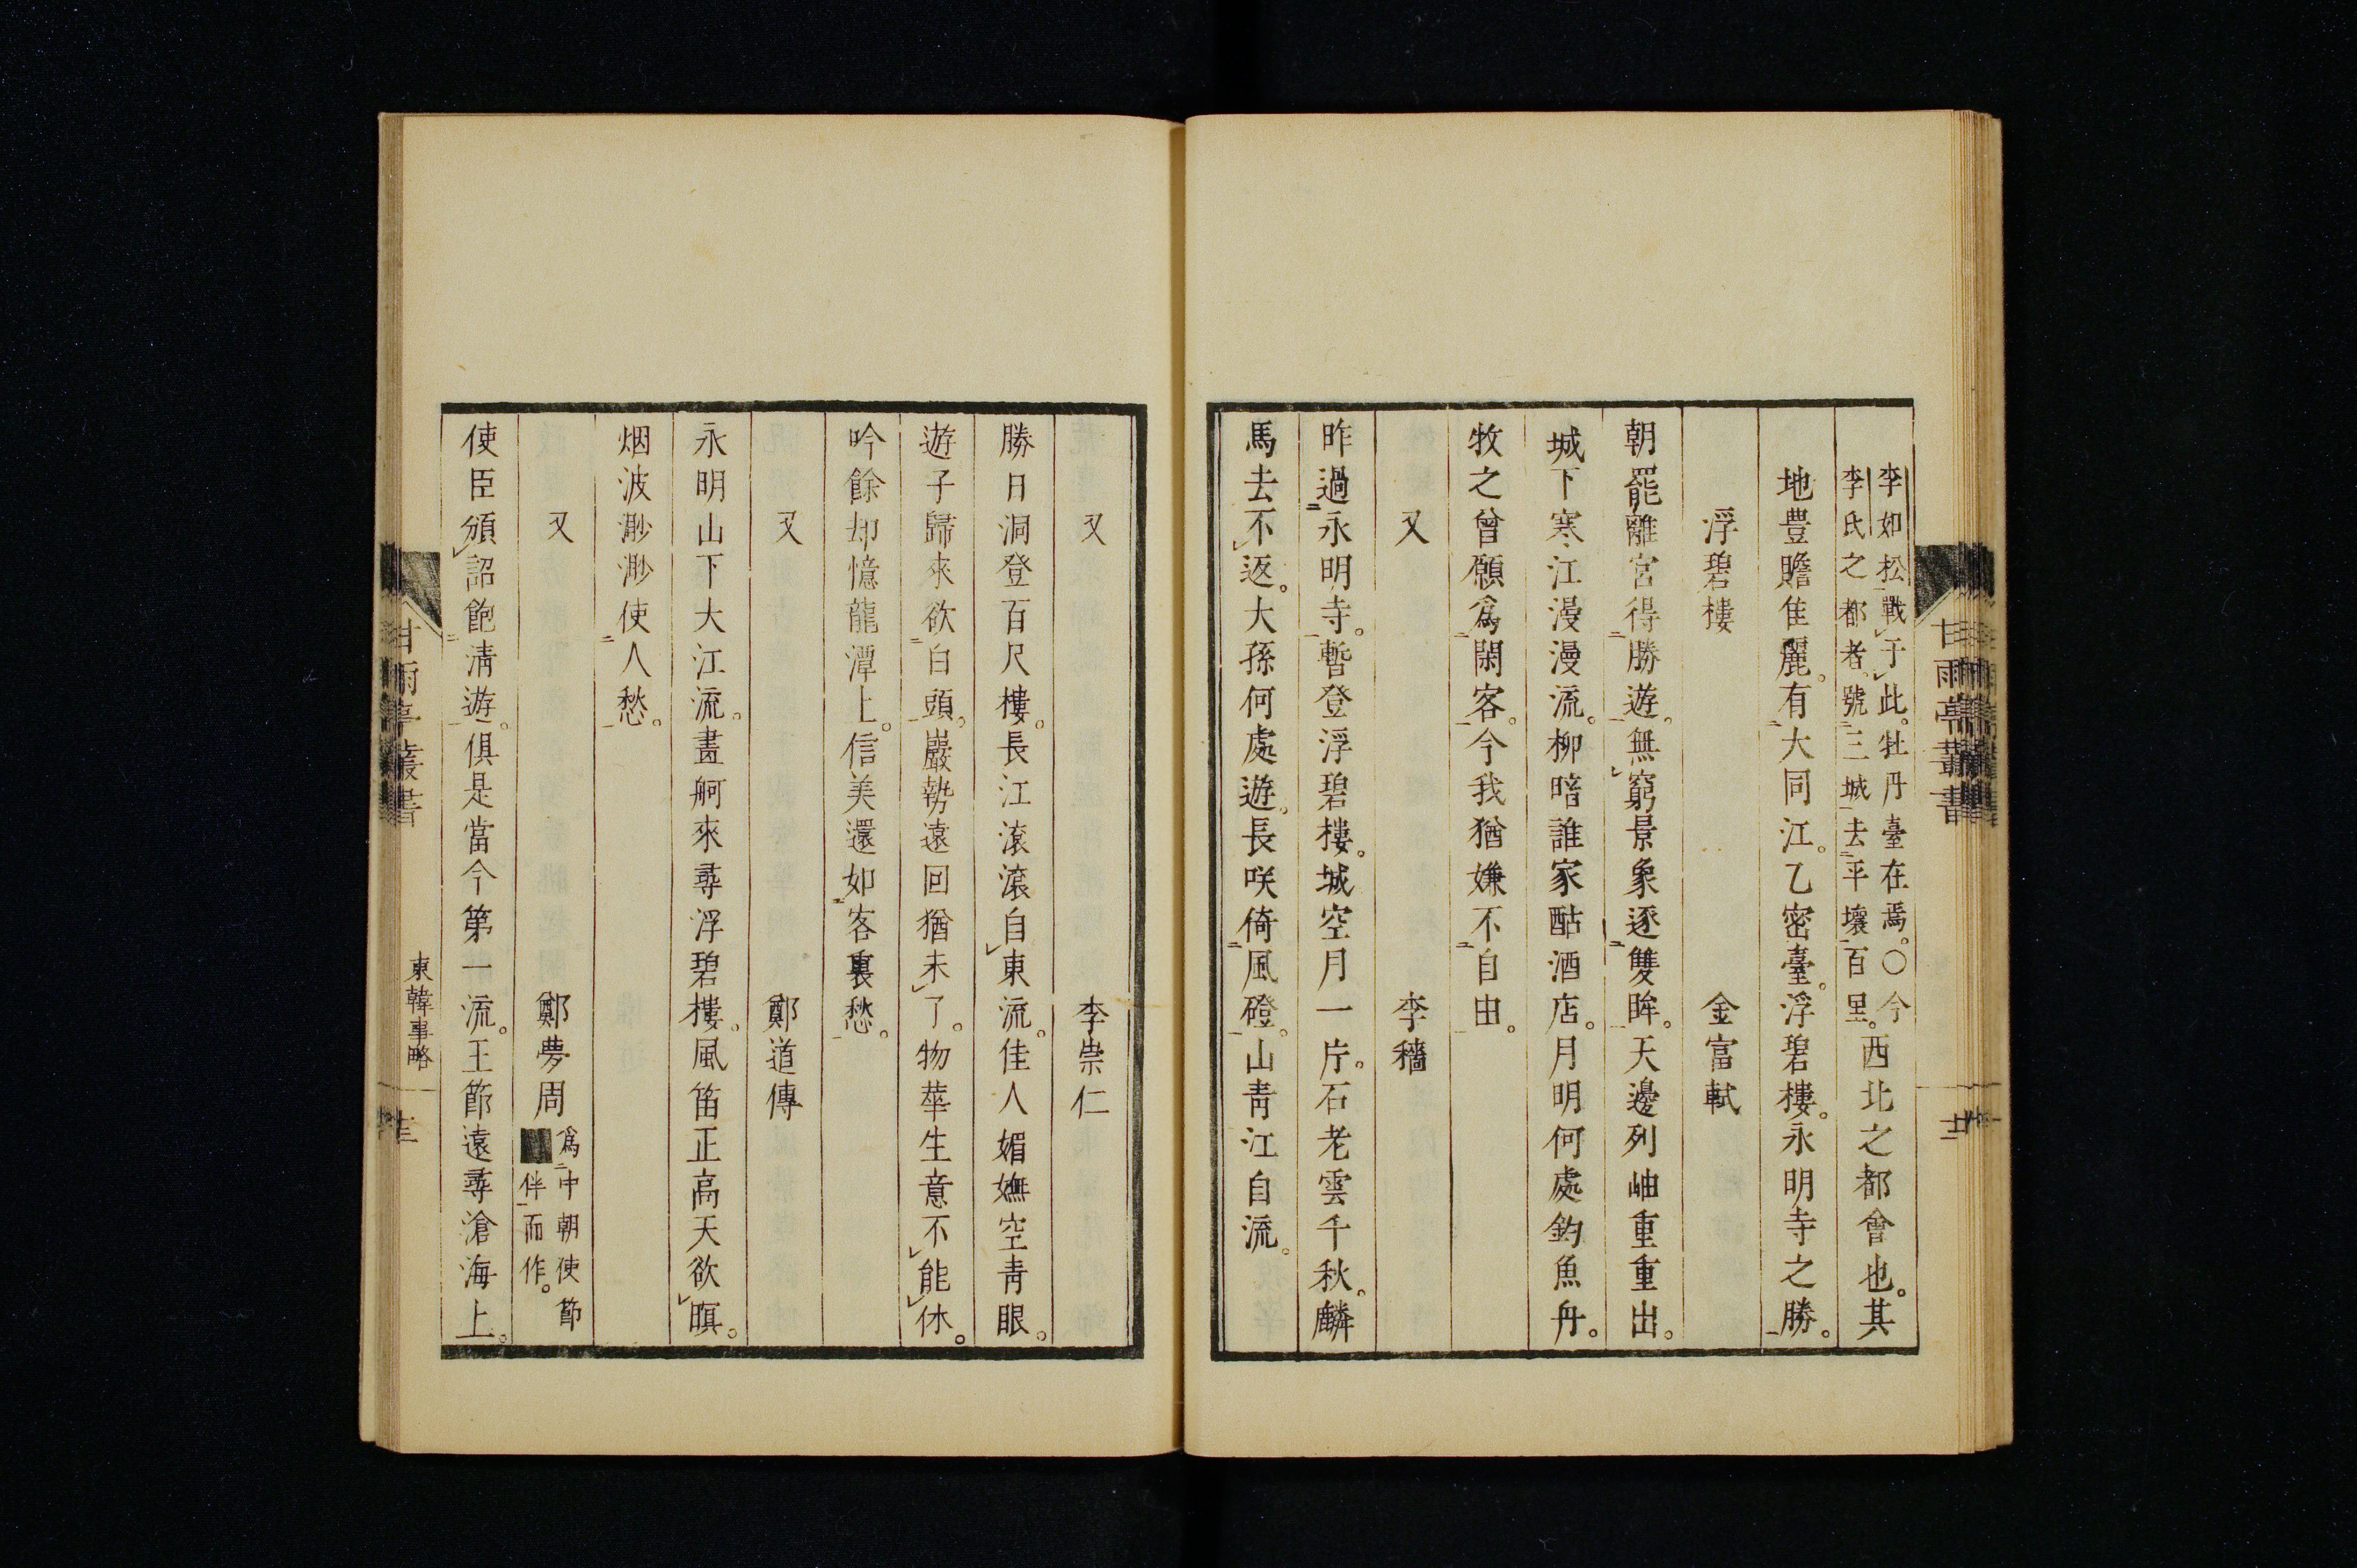 李如松戰于此。牡丹臺在焉。○今
李氏之都者。號三城去平壤百里。
西北之都會也。其
地豊贍佳麗。有大同江。乙密臺。浮碧樓。永明寺之勝。
浮碧樓 金富軾
朝罷離宮得勝遊。無窮景象逐雙眸。天邊列岫重重出。
城下寒江漫漫流。柳暗誰家酤酒店。月明何處釣魚舟。
牧之曾願爲閑客。今我猶嫌不自由。
又 李穡
昨過永明寺。暫登浮碧樓。城空月一片。石老雲千秋。麟
馬去不返。大孫何處遊。長咲倚風磴。山靑江自流。
甘雨亭叢書
又 李崇仁
勝日洞登百尺樓。長江滾滾自東流。佳人媚嫵空靑眼。
遊子歸來欲白頭。巖勢遠回猶未了。物華生意不能休。
吟餘却憶龍潭上。信美還如客裏愁。
又 鄭道傳
永明山下大江流。畫舸來尋浮碧樓。風笛正高天欲暝。
烟波渺渺使人愁。
又 鄭夢周 爲中朝使節
伴而作。
使臣頒詔飽淸遊。俱是當今第一流。王節遠尋滄海上。
甘雨亭叢書
東韓事略